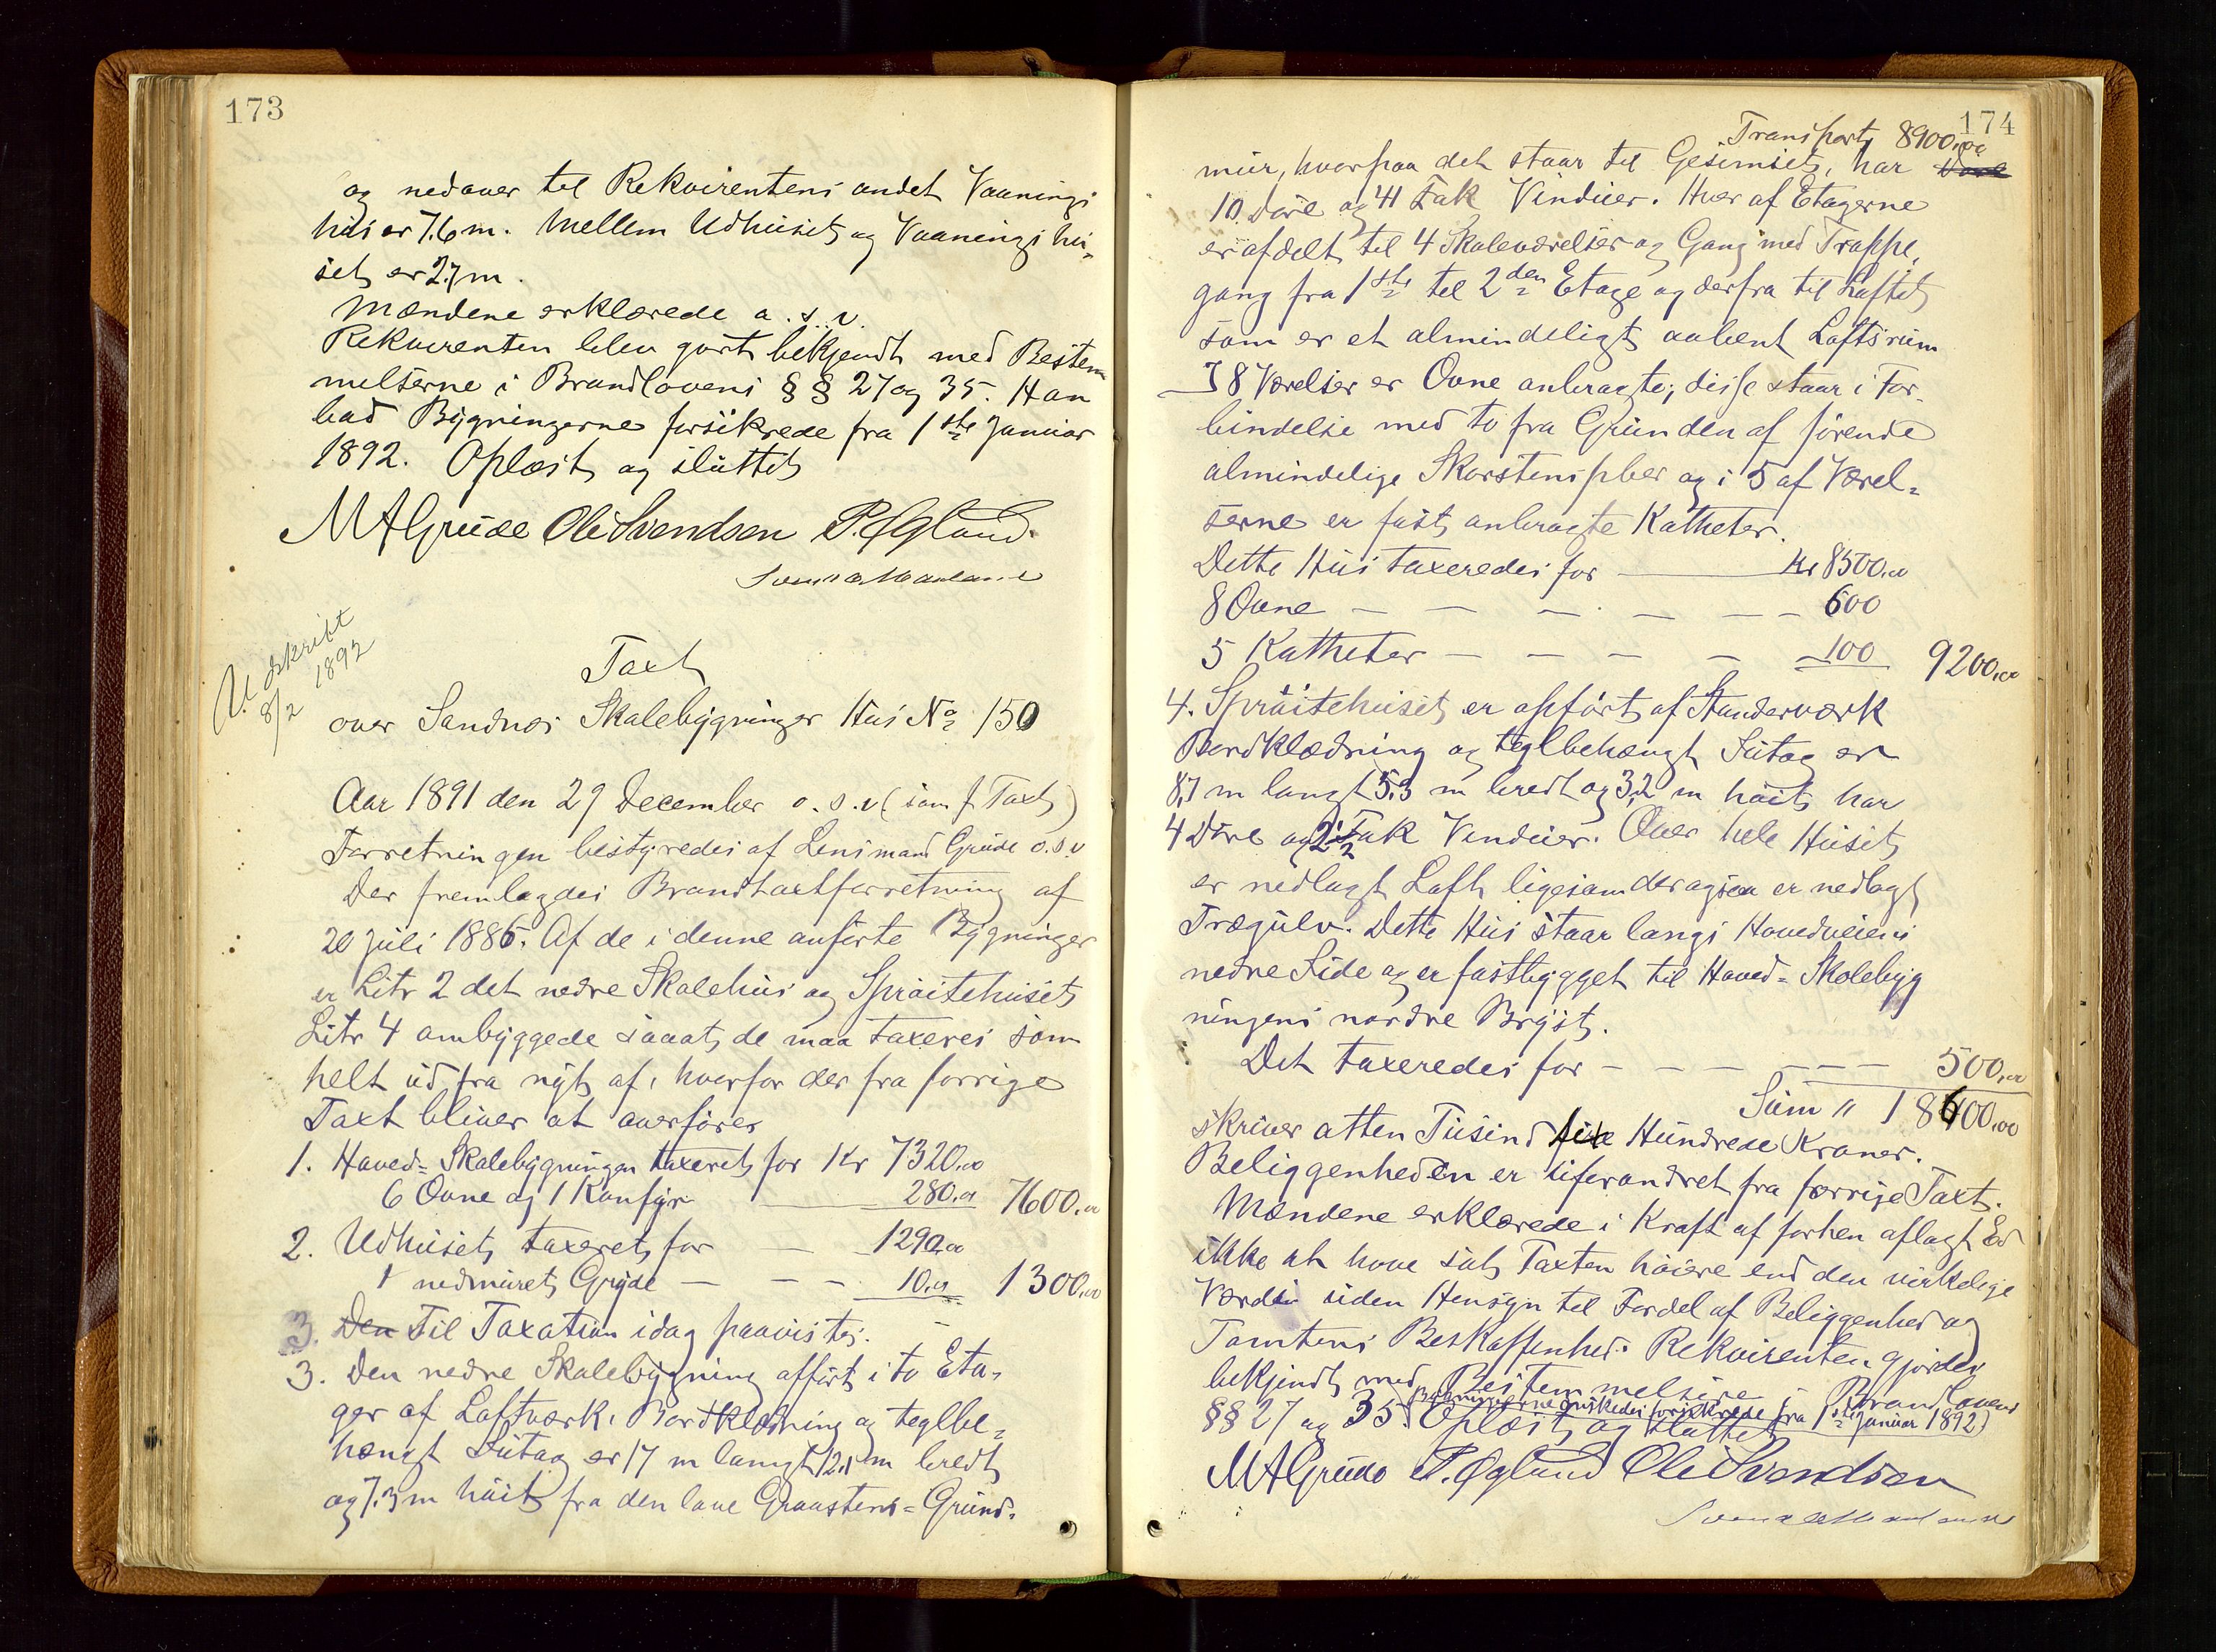 173
og nedover til Rekvirentens andet Vaanings
hus er 7.6 m. Mellem Udhuset og Vaaningshu-
set er 2.7 m.
Mændene erklærede o. s. v.
Rekvirenten blev gjort bekjendt med Bestem
melserne i Brandlovens §§ 27 og 35. Han
bad Bygningerne forsikrede fra 1ste Januar
1892. Oplæst og sluttet
M A Grude Ole Svendsen P. Øglænd.
Udskrift
8/2 1892
Taxt
over Sandnes Skolebygninger Hus No 150
Aar 1891 den 29 December o. s. v (som f. Taxt)
Forretningen bestyredes af Lensmand Grude o.s.v
Der fremlagdes Brandtaxtforretning af
20 Juli 1886. Af de i denne anførte Bygninger
er Litr 2 det nedre Skolehus og Sprøitehuset
Litr 4 ombyggede saaat de maa taxeres som
helt ud fra nyt af, hvorfor der fra forrige
Taxt bliver at overføres
1. Hoved-Skolebygningen taxeret for Kr 7320.00
6 Ovne og 1 Komfyr 280.00 7600.00
2. Udhuset taxeret for — 1290.00
1 nedmuret Gryde — — — 10.00 1300.00
3. Den Til Taxation idag paavistes.
3. Den nedre Skolebygning opført i to Eta-
ger af Laftværk, Bordklædning og teglbe-
hængt Sutag er 17 m langt 12.1 m bredt
og 7.3 m høit fra den lave Graastens-Grund-
174
Transport 8900.00
mur, hvorpaa det staar til Gesimset, har
10 Døre og 41 Fak Vinduer. Hver af Etagerne
er afdelt til 4 Skoleværelser og Gang med Trappe,
gang fra 1ste til 2den Etage og derfra til Loftet
som er et almindeligt aabent Loftsrum
I 8 Værelser er Ovne anbragte; disse staar i For-
bindelse med to fra Grunden afførende
almindelige Skorstenspiber og i 5 af Værel-
serne er fast anbragte Katheter.
Dette Hus taxeredes for — Kr 8500.00
8 Ovne — — — — — 600
5 Katheter — — — — 100 9200.00
4. Sprøitehuset er opført af Standerværk
Bordklædning og teglbehængt Sutag er
8,7 m langt 5.5 m bredt og 3,2 m høit har
4 Døre og 2 1/2 Fak Vinduer. Over hele Huset
er nedlagt Loft ligesom der ogsaa er nedlagt
Trægulv. Dette Hus staar langs Hovedveiens
nedre Side og er fastbygget til Hoved-Skolebyg
ningens nordre Bryst.
Det taxeredes for — — — — — — 500.00
Sum " 18600.00
skriver atten Tusind Hundrede Kroner.
Beliggenheden er uforandret fra forrige Taxt.
Mændene erklærede i Kraft af forhen aflagt Ed
ikke at have sat Taxten høiere end den virkelige
Værdi uden Hensyn til Fordel af Beliggenhed og
Tomtens Beskaffenhed. Rekvirenten gjordes
bekjendt med Bestemmelserne i Brandlovens
§§ 27 og 35. (Bygningerne ønskedes forsikrede fra 1ste Januar 1892)
Oplæst og sluttet
M A Grude P. Øglænd Ole Svendsen